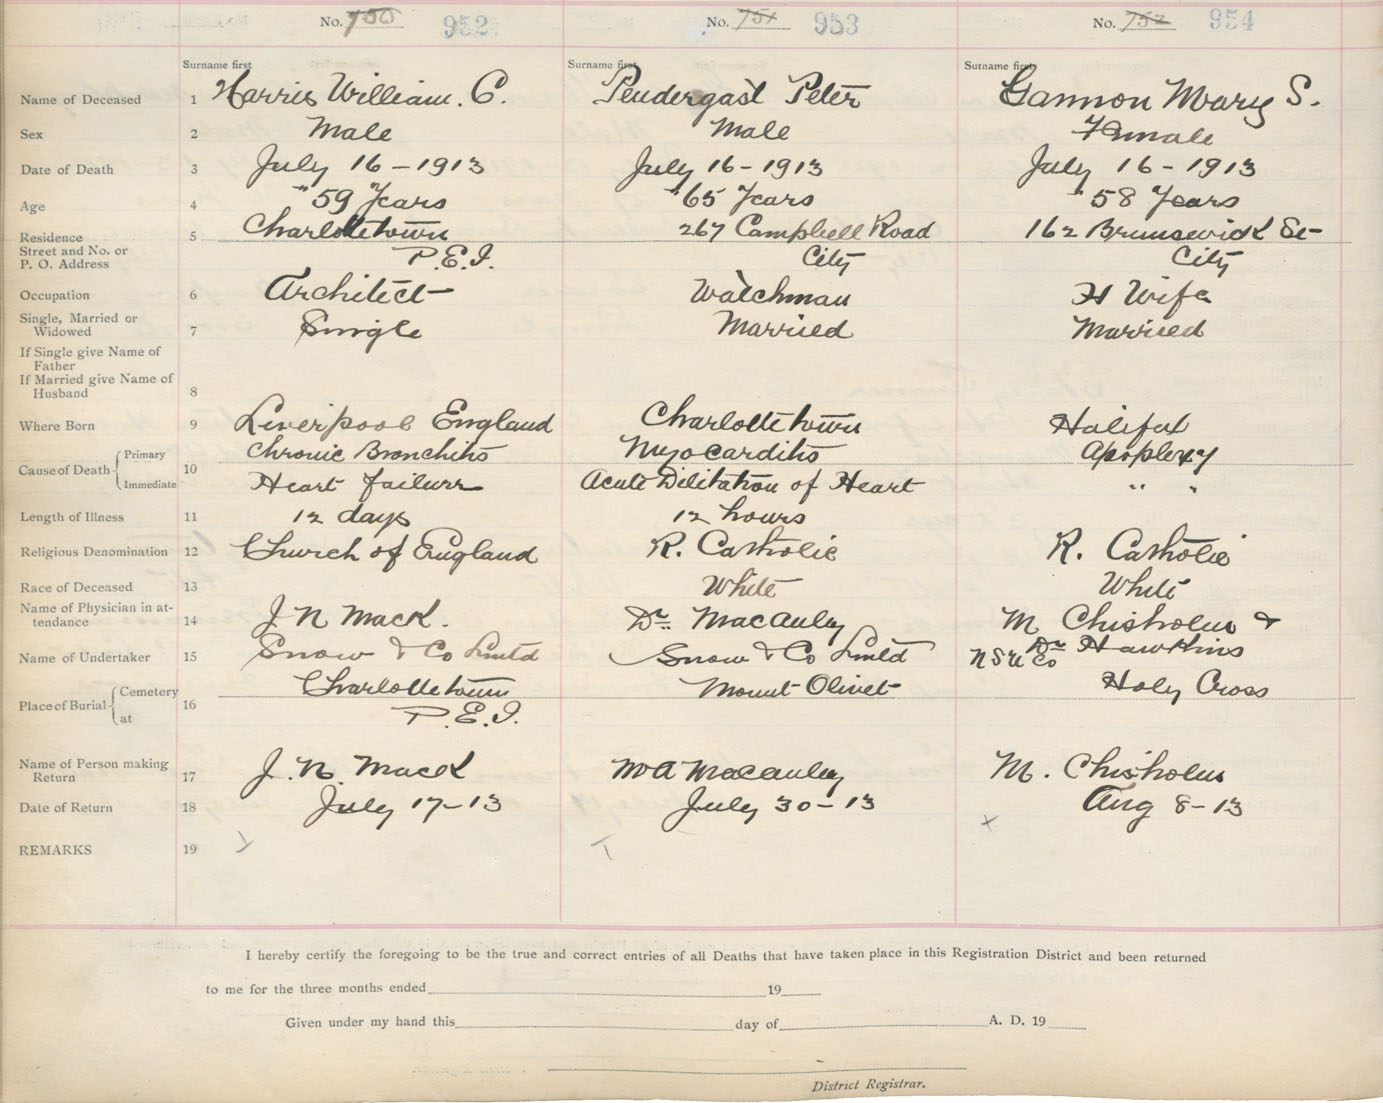 No. 750 952 No. 751 953 No. 752 954
Surname first Surname first Surname first
Name of Deceased 1 Harris William. C. Pendergast Peter Gannon Mary S.
Sex 2 Male Male Female
Date of Death 3 July 16-1913 July 16-1913 July 16-1913
Age 4 59 Years 65 Years 58 Years
Residence 5 Charlottetown 267 Campbell Road 162 Brunswick St
Street and No. or
P. O. Address P.E.I. City City
Occupation 6 Architect Watchman H Wife
Single, Married or
Widowed 7 Single Married Married
If Single give Name of
Father
If Married give Name of
Husband 8
Where Born 9 Liverpool England Charlottetown Halifax
Cause of Death Primary Chronic Bronchitis Myocarditis Apoplexy
10
Immediate Heart failure Acute Dilitation of Heart " "
Length of Illness 11 12 days 12 hours
Religious Denomination 12 Church of England R. Catholic R. Catholic
Race of Deceased 13 White White
Name of Physician in at-
tendance 14 J N Mack. Dr. MacAulay M Chisholm &
Dr Hawkins
Name of Undertaker 15 Snow & Co Limtd Snow & Co Limtd N S U Co
Place of Burial Cemetery Charlottetown Mount Olivet Holy Cross
16
at P.E.I.
Name of Person making
Return 17 J. N. Mack W A Macaulay M. Chisholm
Date of Return 18 July 17-13 July 30-13 Aug 8-13
REMARKS 19
I hereby certify the foregoing to be the true and correct entries of all Deaths that have taken place in this Registration District and been returned
to me for the three months ended 19
Given under my hand this day of A. D. 19
District Registrar.